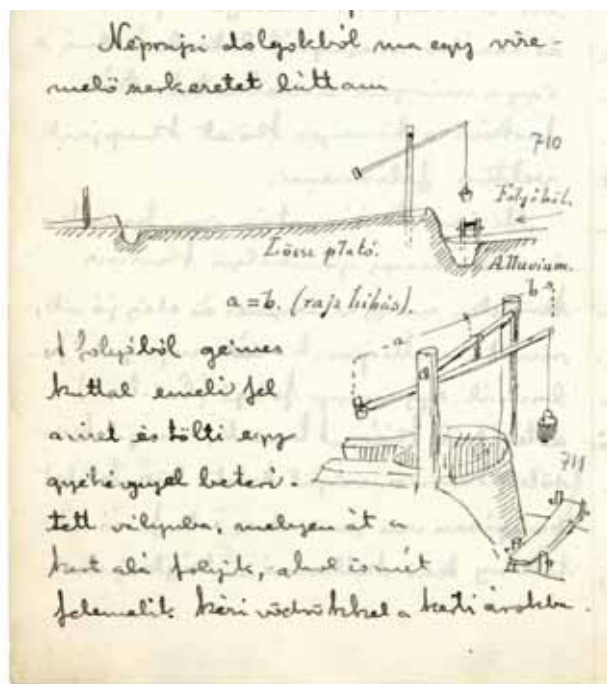 Néprajzi dolgokból ma egy vize-
melő szerkezetet láttam
710
Folyóból.
Lösz plató.
Alluvium.
a = b. (rajz hibás).
b
a
A folyóból gémes
kuttal emeli fel
a vizet és tölti egy
gyékénnyel beterí-
711
tett vályuba, melyen át a
kert alá folyik, ahol ismét
felemelik kézi vödrökkel a kerti árokba.